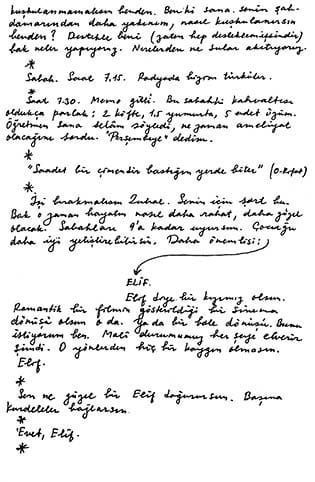 kuşkulanmamaksın benden. Ben ki sana senin şah-
damarından daha yakınım, nasıl kuşkulanırsın
benden? Destekle beni (zaten hep desteklemişsindir)
bak neler yapıyoruz. Nerelerden ne sular akıtıyoruz.
*
Sabah. Saat 7.15. Radyoda bizim türküler.
*
Saat 7.30. Memo gitti. Bu sabahki kahvaltısı
oldukça parlak: 2 köfte, 1.5 yumurta, 5 adet üzüm.
Öğretmen sana selâm söylemiş, ne zaman ameliyat
olacağını sordu. "Perşembeye" dedim.
*
"Saadet bir çimendir bastığın yerde biter" (O.Rıfat)
*
İşi bırakmalısın Zuhal. Senin için şart bu.
Bak o zaman hayatın nasıl daha rahat, daha güzel
olacak. Sabahları 9'a kadar uyursun. Çocuğu
daha iyi yetiştirebilirsin. Daha önemlisi:
ELİF.
Elif diye bir kızımız olsun.
Romantik bir filmin gösterildiği bir sinema
dönüşü olsun o da. Ya da bir bale dönüşü. Bunu
istiyorum ben. Mali durumumuz her şeye elverir
şimdi. O yönlerden hiç bir kaygın olmasın.
Elif.
*
Sen ne güzel bir Elif doğurursun. Başına
kurdeleler bağlarsın.
*
Evet, Elif.
*